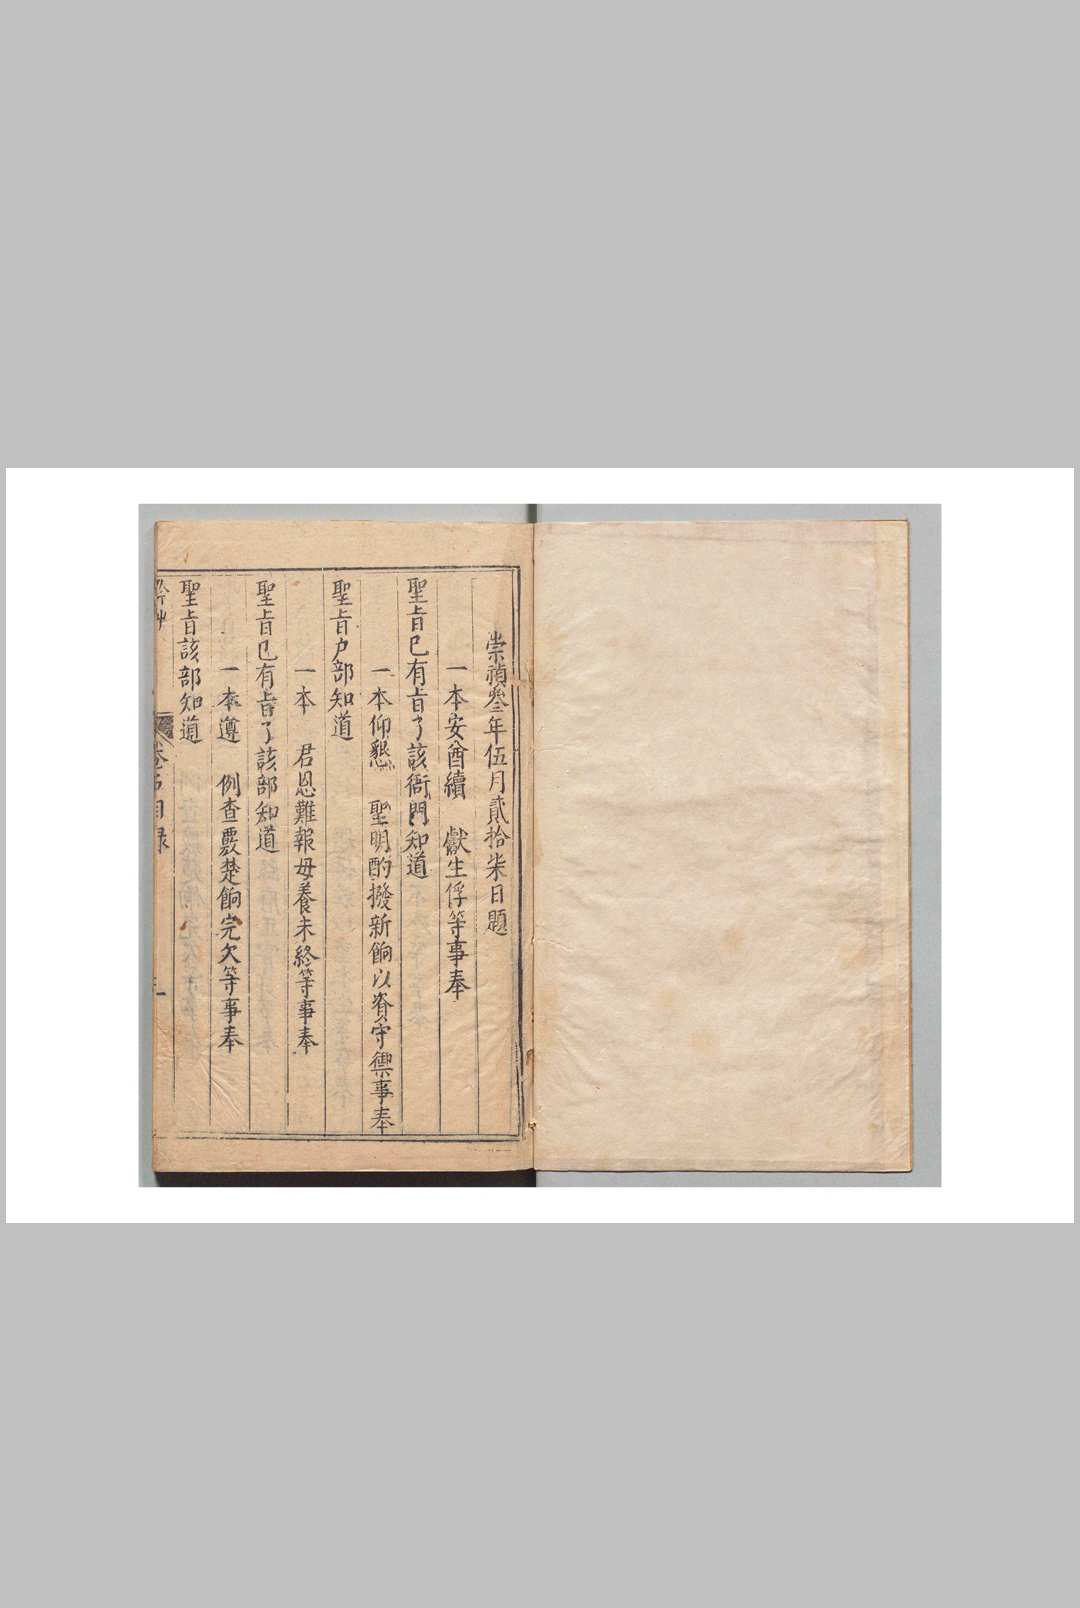 崇禎叄年伍月貳拾柒日題
一本安酋續　獻生俘等事奉
聖旨已有旨了該衙門知道
一本仰懇　聖明酌撥新餉以資守禦事奉
聖旨户部知道
一本　君恩難報母養未終等事奉
聖旨已有旨了該部知道
一本遵　例查覈楚餉完欠等事奉
聖旨該部知道
目録